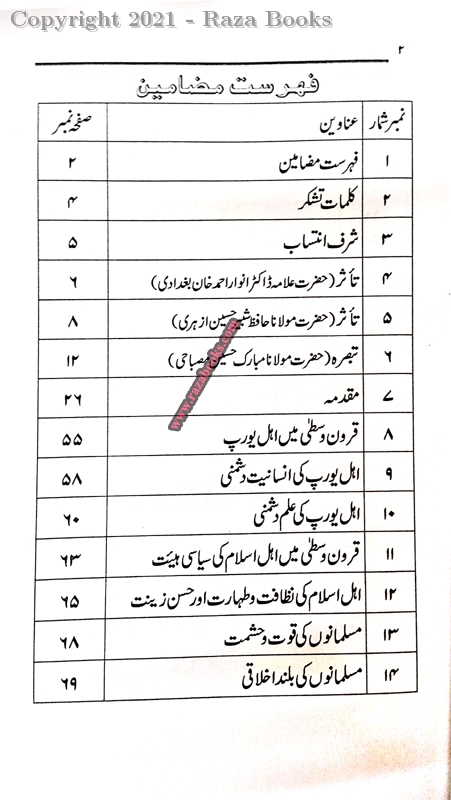 Copyright 2021 - Raza Books
۲
فہرست مضامین
نمبر شمار عناوین صفحہ نمبر
۱ فہرست مضامین ۲
۲ کلمات تشکر ۴
۳ شرف انتساب ۵
۴ تأثر (حضرت علامہ ڈاکٹر انوار احمد خان بغدادی) ۶
۵ تأثر (حضرت مولانا حافظ شبیر حسین ازہری) ۸
۶ تبصرہ (حضرت مولانا مبارک حسین مصباحی) ۱۲
۷ مقدمہ ۲۶
۸ قرون وسطیٰ میں اہل یورپ ۵۵
۹ اہل یورپ کی انسانیت دشمنی ۵۸
۱۰ اہل یورپ کی علم دشمنی ۶۰
۱۱ قرون وسطیٰ میں اہل اسلام کی سیاسی ہیئت ۶۳
۱۲ اہل اسلام کی نظافت و طہارت اور حسن زینت ۶۵
۱۳ مسلمانوں کی قوت و حشمت ۶۸
۱۴ مسلمانوں کی بلند اخلاقی ۶۹
www.razabooks.com